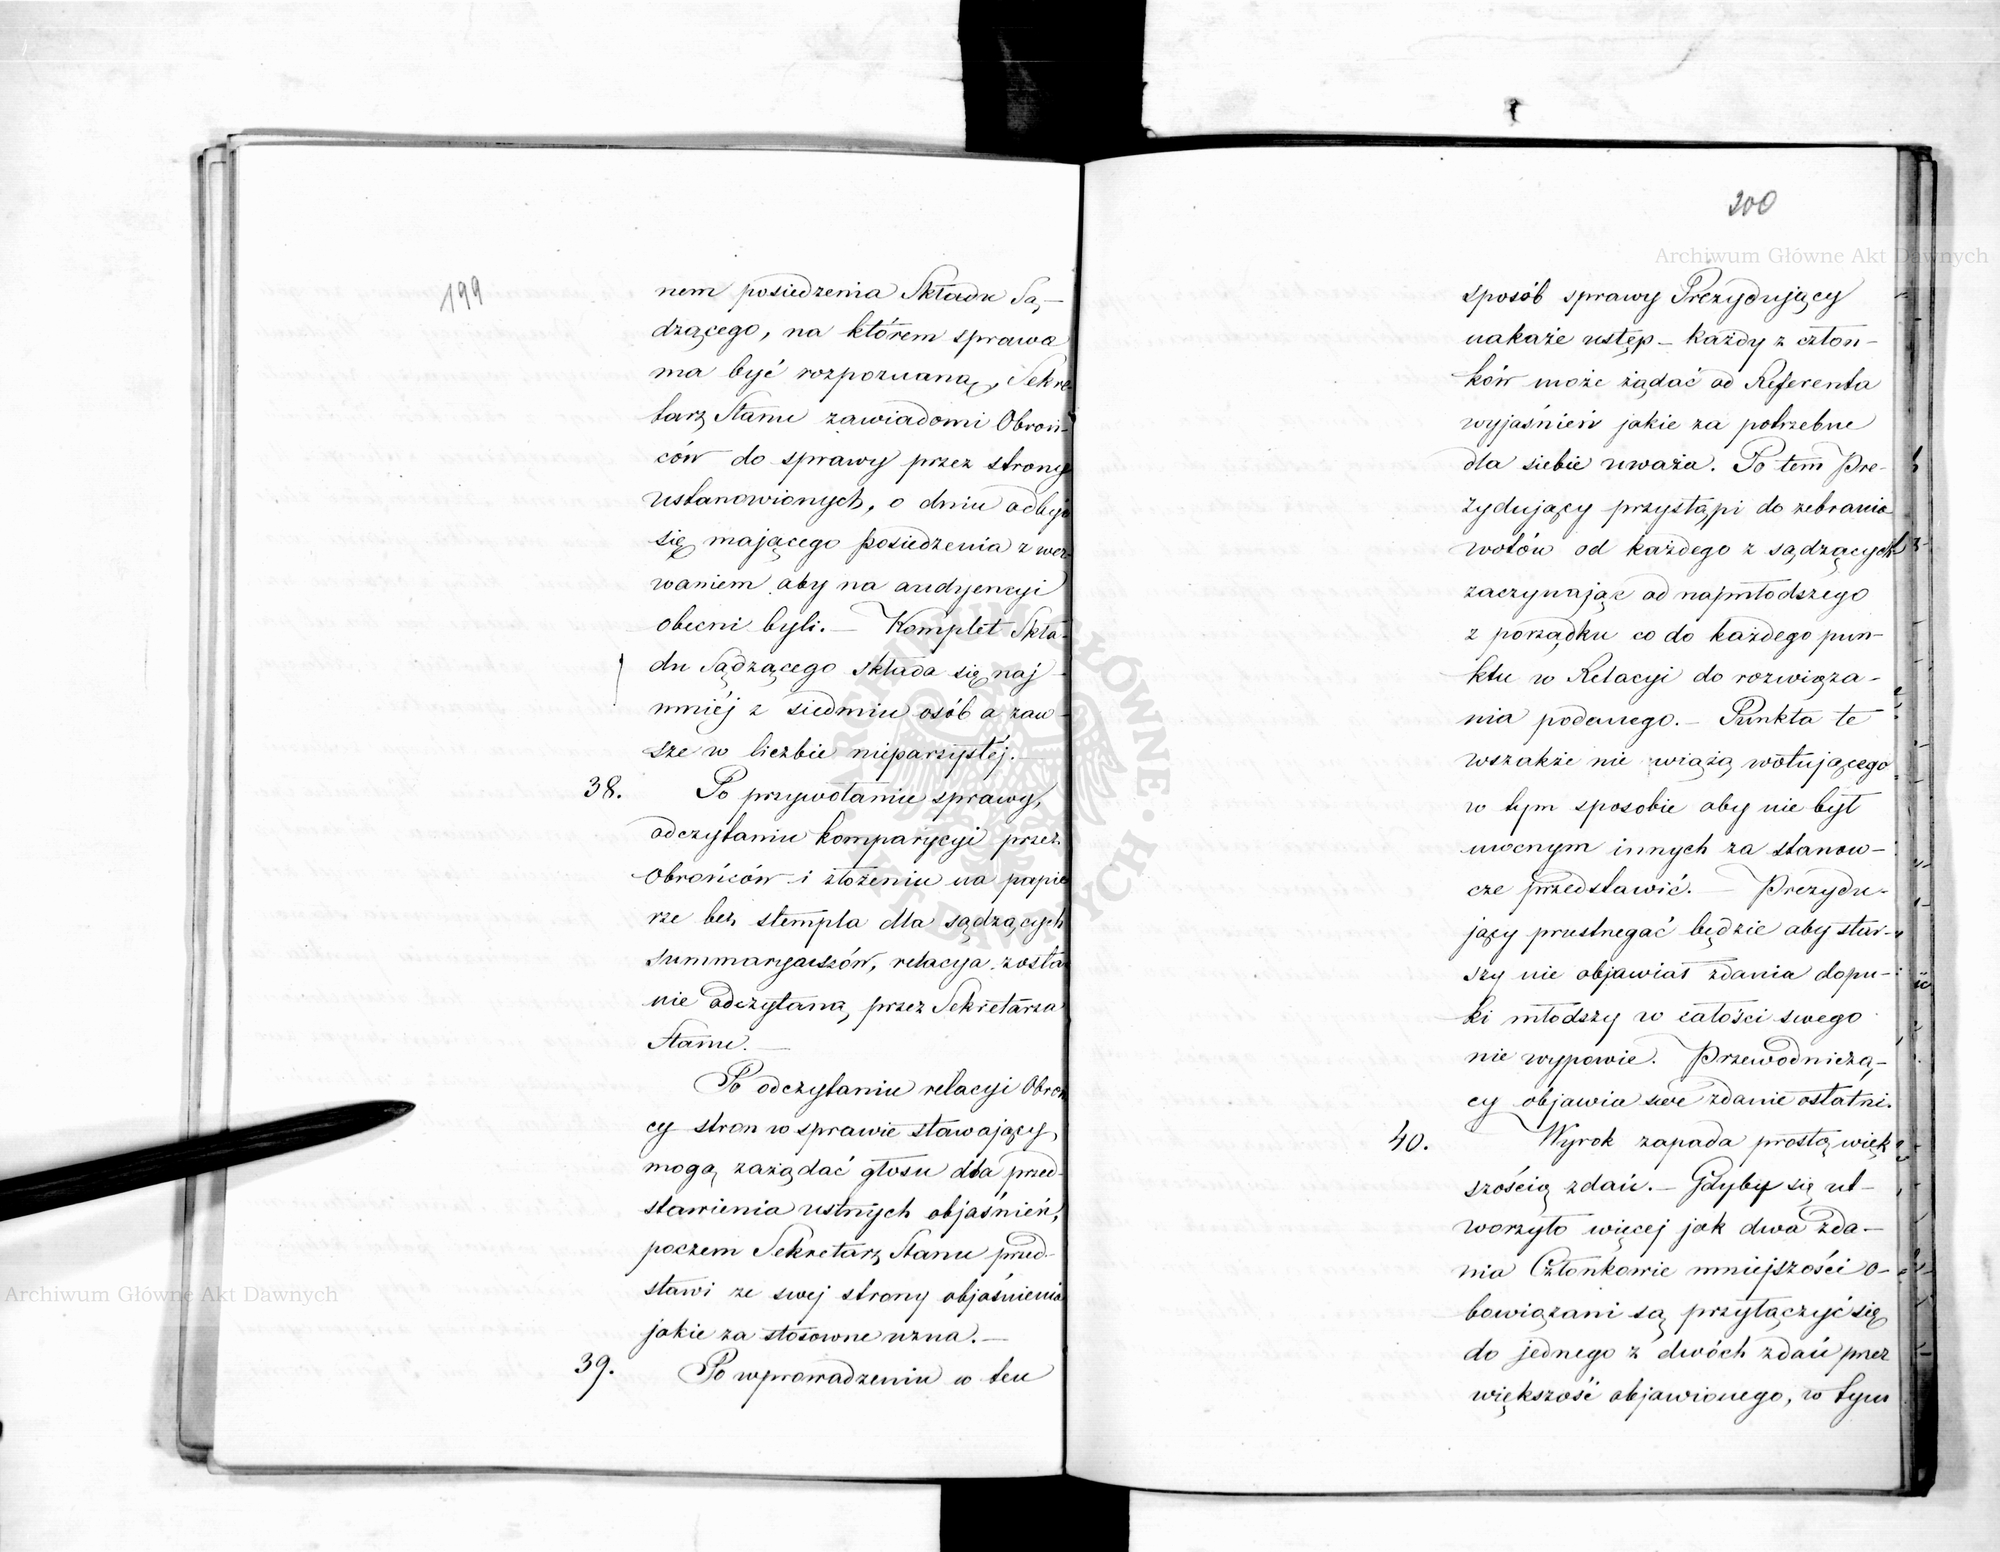 199
nem posiedzenia Składu Są-
dzącego, na którem sprawa
ma być rozpoznaną, Sekre
tarz Stanu zawiadomi Obroń-
ców do sprawy przez strony
ustanowionych, o dniu odbyć
się mającego posiedzenia z wez-
waniem aby na audyencyi
obecni byli. — Komplet Skła-
du Sądzącego składa się naj-
mniéj z siedmiu osób a zaw-
sze w liczbie nieparzystéj. —
38. Po przywołaniu sprawy,
odczytaniu komparycyi przez
Obrońców i złożeniu na papie
rze bez stempla dla sądzących
summaryuszów, relacya zosta
nie odczytaną przez Sekretarza
Stanu. —
Po odczytaniu relacyi Obroń
cy stron w sprawie stawający,
mogą zażądać głosu dla przed-
stawienia ustnych objaśnień,
poczem Sekretarz Stanu przed-
stawi ze swej strony objaśnienia
jakie za stosowne uzna. —
39. Po wprowadzeniu w ten
200
sposób sprawy Prezydujący
nakaże ustęp — każdy z człon-
ków może żądać od Referenta
wyjaśnień jakie za potrzebne
dla siebie uważa. Po tem Pre-
zydujący przystąpi do zebrania
wotów od każdego z sądzących
zaczynając od najmłodszego
z porządku co do każdego pun-
ktu w Relacyi do rozwiąza-
nia podanego. — Punkta te
wszakże nie wiążą wotującego
w tym sposobie aby nie był
mocnym innych za stanow-
cze przedstawić. — Prezydu-
jący przestrzegać będzie aby star-
szy nie objawiał zdania dopó-
ki młodszy w całości swego
nie wypowie. Przewodniczą-
cy objawia swe zdanie ostatni.
40. Wyrok zapada prostą więk
szością zdań. — Gdyby się ut-
worzyło więcej jak dwa zda-
nia Członkowie mniejszości o-
bowiązani są przyłączyć się
do jednego z dwóch zdań przez
większość objawionego, w tym
Archiwum Główne Akt Dawnych
Archiwum Główne Akt Dawnych
ARCHIWUM GŁÓWNE AKT DAWNYCH